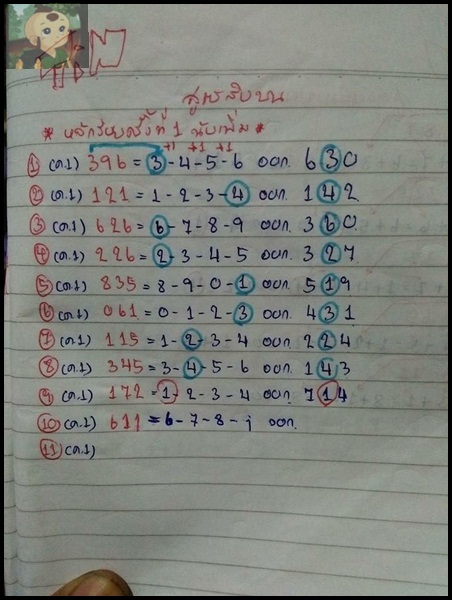 แดน
สูตรสิบบน
* หลักร้อยครั้งที่ 1 นับเพิ่ม *
+1 +1 +1
① (ค.1) 396 = 3 - 4 - 5 - 6 ออก. 630
② (ค.1) 121 = 1 - 2 - 3 - 4 ออก. 142
③ (ค.1) 626 = 6 - 7 - 8 - 9 ออก. 360
④ (ค.1) 226 = 2 - 3 - 4 - 5 ออก. 327
⑤ (ค.1) 835 = 8 - 9 - 0 - 1 ออก. 519
⑥ (ค.1) 061 = 0 - 1 - 2 - 3 ออก. 431
⑦ (ค.1) 115 = 1 - 2 - 3 - 4 ออก. 224
⑧ (ค.1) 345 = 3 - 4 - 5 - 6 ออก. 143
⑨ (ค.1) 172 = 1 - 2 - 3 - 4 ออก. 714
⑩ (ค.1) 611 = 6 - 7 - 8 - ออก.
⑪ (ค.1)